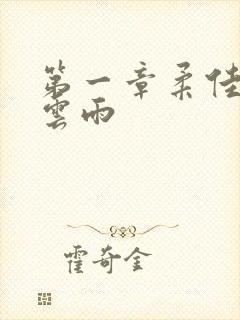 第一章柔佳
雲雨
霍奇金